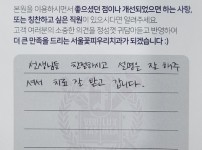 본원을 이용하시면서 좋으셨던 점이나 개선되었으면 하는 사항,
또는 칭찬하고 싶은 직원이 있으시다면 알려주세요.
고객 여러분의 소중한 의견을 정성껏 귀담아듣고 반영하여
더 큰 만족을 드리는 서울꽃피우리치과가 되겠습니다 :)
선생님들 친절하시고 설명을 잘 해주
셔서 치료 잘 받고 갑니다.